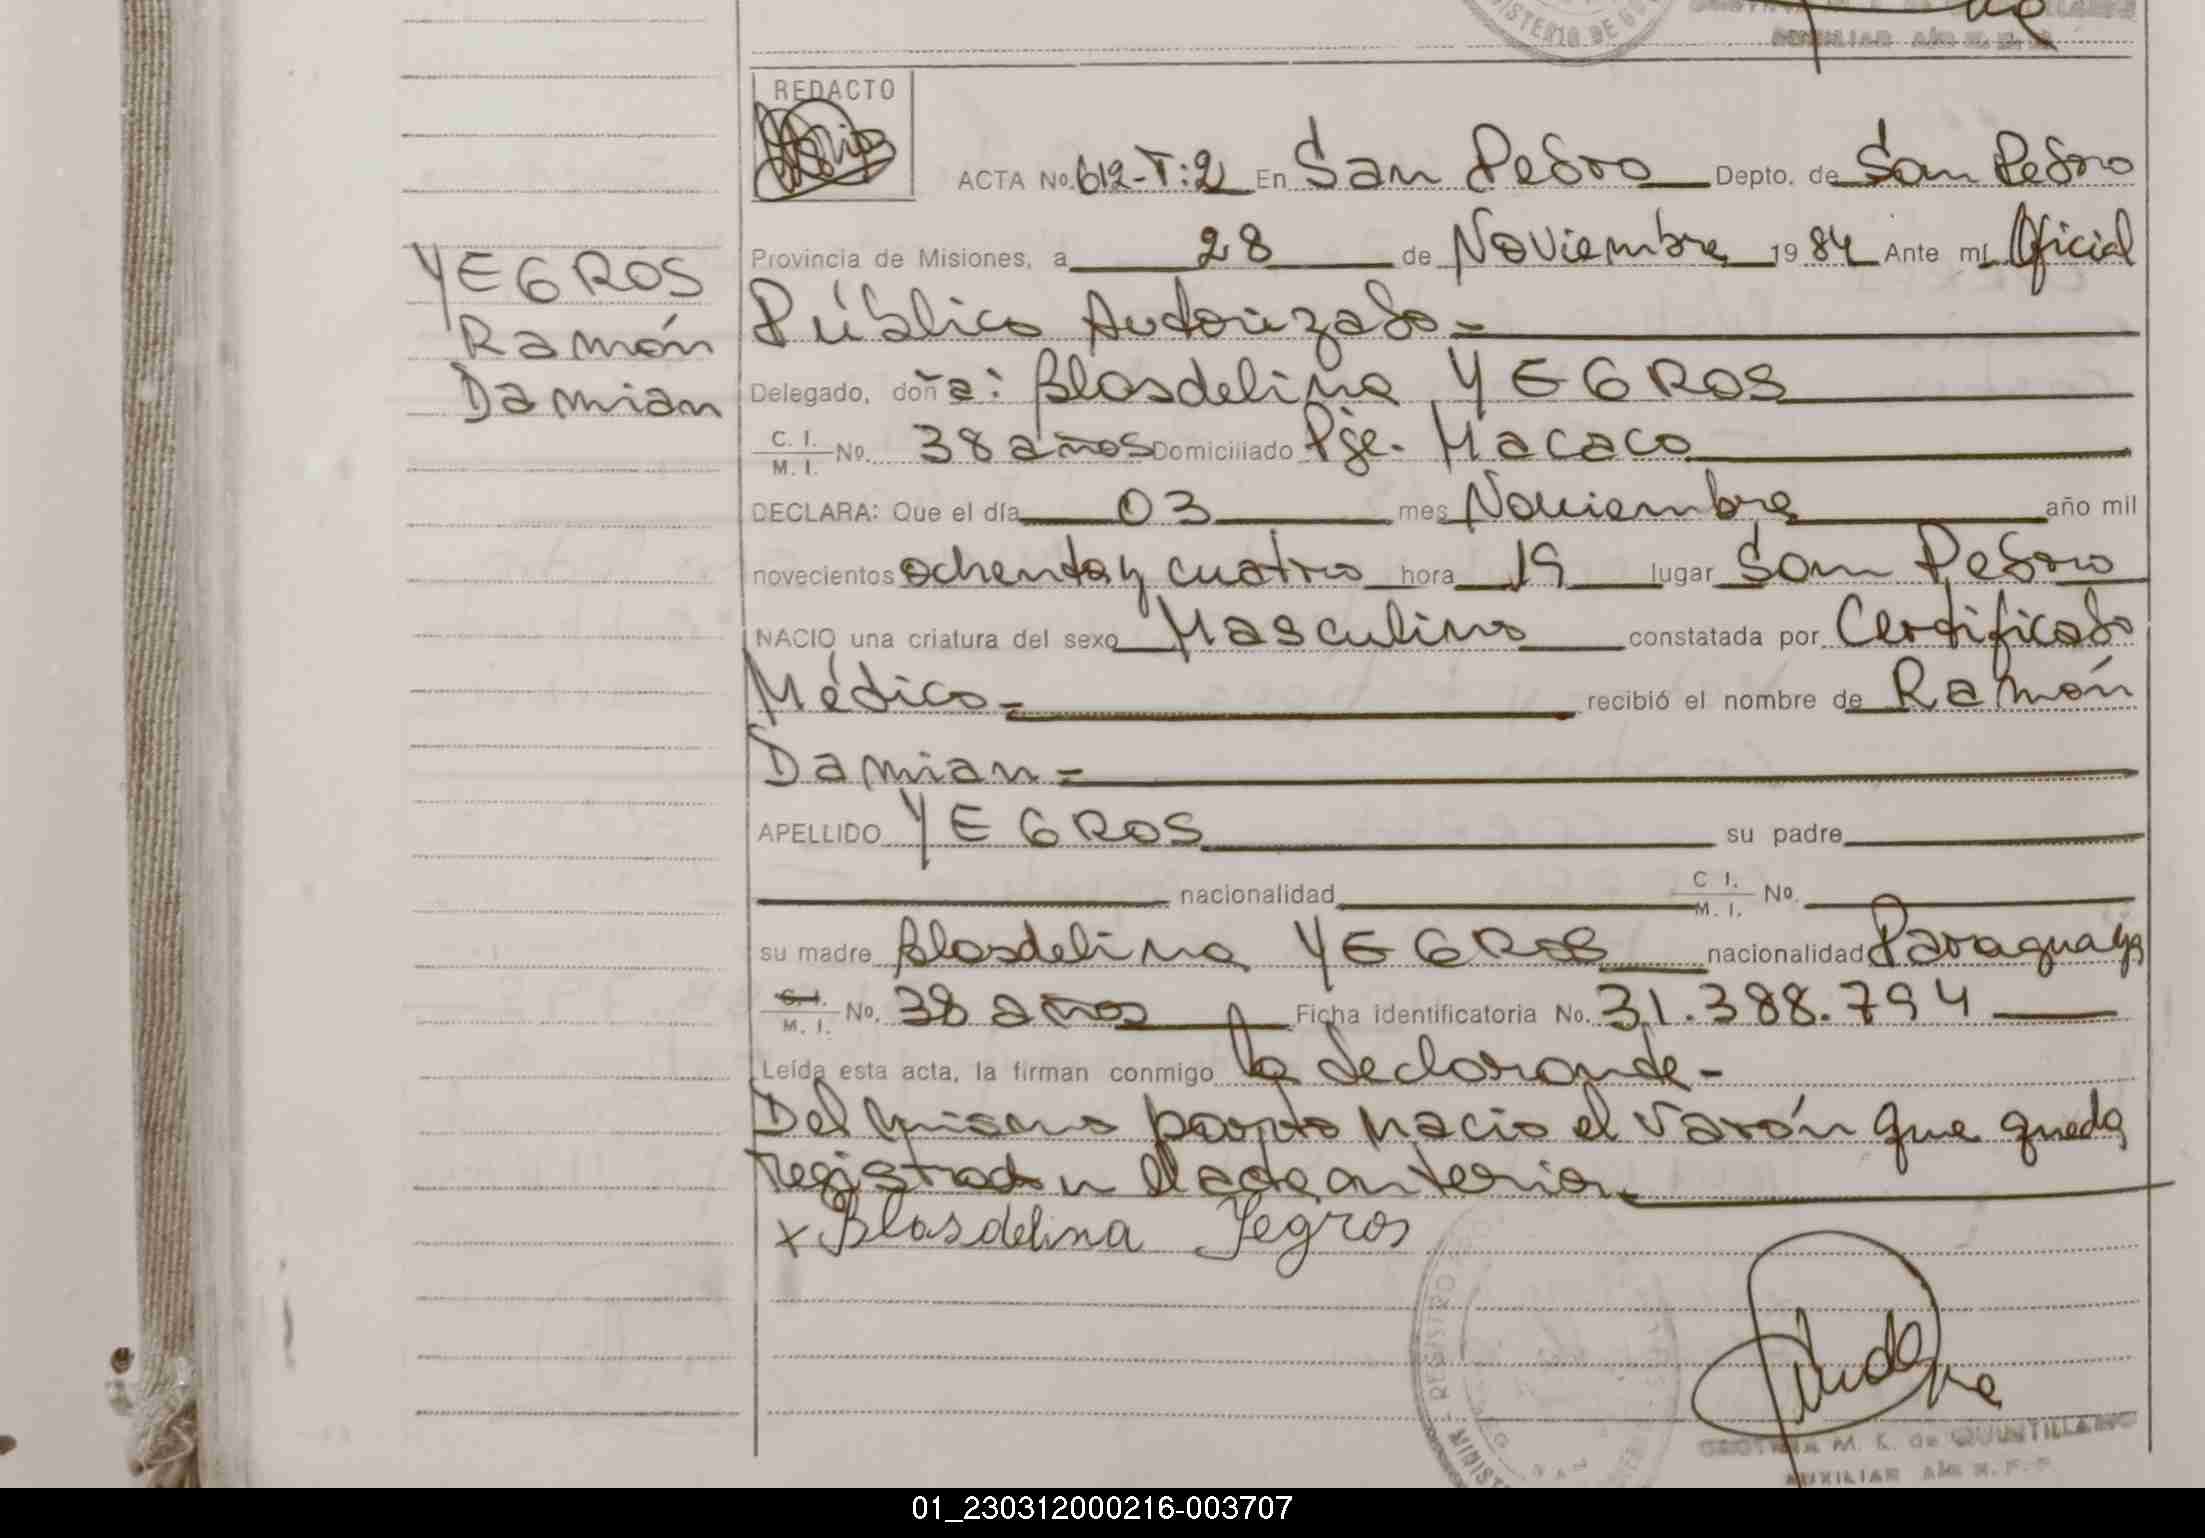 MINISTERIO DE GO
AUXILIAR
REDACTO
ACTA No. 612-T:2 En San Pedro Depto. de San Pedro
Provincia de Misiones, a 28 de Noviembre 1984 Ante mí Oficial
Público Autorizado=
Delegado, doña: Blasdelina YEGROS
C. I. M. I. No. 38 años Domiciliado Pje. Macaco
DECLARA: Que el día 03 mes Noviembre año mil
novecientos ochenta y cuatro hora 19 lugar San Pedro
NACIO una criatura del sexo Masculino constatada por Certificado
Médico= recibió el nombre de Ramón
Damian=
APELLIDO YEGROS su padre
nacionalidad C I. M. I. No.
su madre Blasdelina YEGROS nacionalidad Paraguaya
C. I. M. I. No. 38 años Ficha identificatoria No. 31.388.794
Leída esta acta, la firman conmigo la declarante-
Del mismo parto nacio el varón que queda
registrado en el acta anterior
x Blasdelina Yegros
YEGROS
Ramón
Damian
REGISTRO
MINIST
M. K. de QUINTILLANO
AUXILIAR
01_230312000216-003707